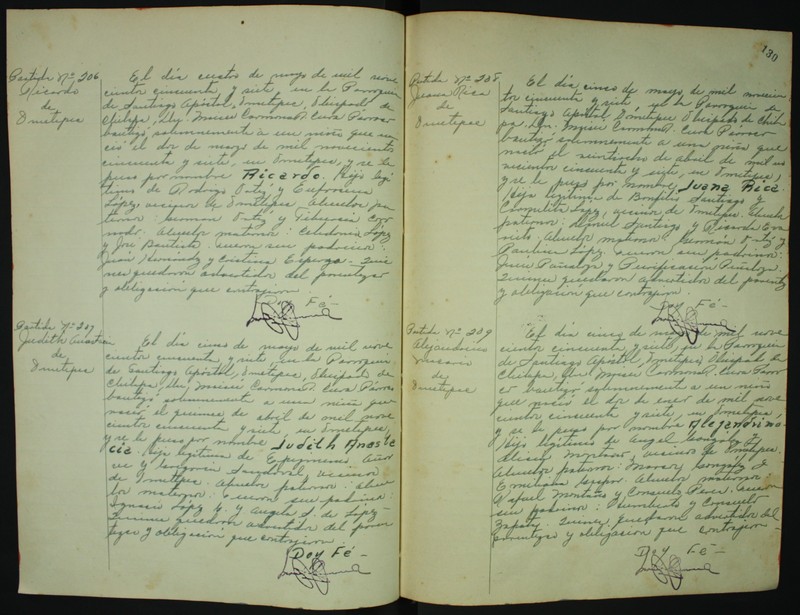 130
Partida Nº 206
Ricardo
de
Ometepec
El día cuatro de mayo de mil nove
cientos cincuenta y siete, en la Parroquia
de Santiago Apóstol, Ometepec, Obispado de
Chilapa, Yo, Moisés Carmona, Cura Párroco
bautizó solemnemente a un niño que na
ció el dos de marzo de mil novecientos
cincuenta y siete, en Ometepec, y se le
puso por nombre Ricardo. Hijo legí
timo de Rodrigo Ortíz y Eufrosina
López, vecinos de Ometepec. Abuelos pa
ternos: Germán Ortíz y Tiburcia
Abuelos maternos: Celedonio López
y José Bautista. Fueron sus padrinos:
Juan Hernández y Cristina
nes quedaron advertidos del parentezco
y obligación que contrajeron
Doy Fé-
Partida Nº 207
Judith Anastacia
de
Ometepec
El día cinco de mayo de mil nove
cientos cincuenta y siete, en la Parroquia
de Santiago Apóstol, Ometepec, Obispado de
Chilapa, Yo, Moisés Carmona, Cura Párroco
bautizó solemnemente a una niña que
nació el quince de abril de mil nove
cientos cincuenta y siete, en Ometepec,
y se le puso por nombre Judith Anasta
cia. Hija legítima de
y Sandoval, vecinos
de Ometepec. Abuelos paternos: Abue
los maternos: Fueron sus padrinos:
Ignacio López G. y Angela S. de López-
Quienes quedaron advertidos del paren
tezco y obligación que contrajeron
Doy Fé-
Partida Nº 208
Juana Rica
de
Ometepec
El día cinco de mayo de mil novecien
tos cincuenta y siete, en la Parroquia de
Santiago Apóstol, Ometepec, Obispado de Chila
pa, Yo, Moisés Carmona, Cura Párroco
bautizó solemnemente a una niña que
nació el veintiocho de abril de mil no
vecientos cincuenta y siete, en Ometepec,
y se le puso por nombre Juana Rica
Hija legítima de Bonfilio Santiago y
López, vecinos de Ometepec. Abuelos
paternos: Miguel Santiago y Ricarda
Abuelos maternos: Germán Ortíz y
Paulina López. Fueron sus padrinos:
Jesús Peñaloza y Purificación Peñaloza.
Quienes quedaron advertidos del parentezco
y obligación que contrajeron.
Doy Fé-
Partida Nº 209
Alejandrino
de
Ometepec
El día cinco de mayo de mil nove
cientos cincuenta y siete, en la Parroquia
de Santiago Apóstol, Ometepec, Obispado de
Chilapa, Yo, Moisés Carmona, Cura Párro
co bautizó solemnemente a un niño
que nació el dos de enero de mil nove
cientos cincuenta y siete, en Ometepec,
y se le puso por nombre Alejandrino
Hijo legítimo de Angel González y
vecinos de Ometepec.
Abuelos paternos: González y
Abuelos maternos:
Rafael Montaño y Consuelo Fueron
sus padrinos: Humberto y Consuelo
Zapata. Quienes quedaron advertidos del
parentezco y obligación que contrajeron-
Doy Fé-